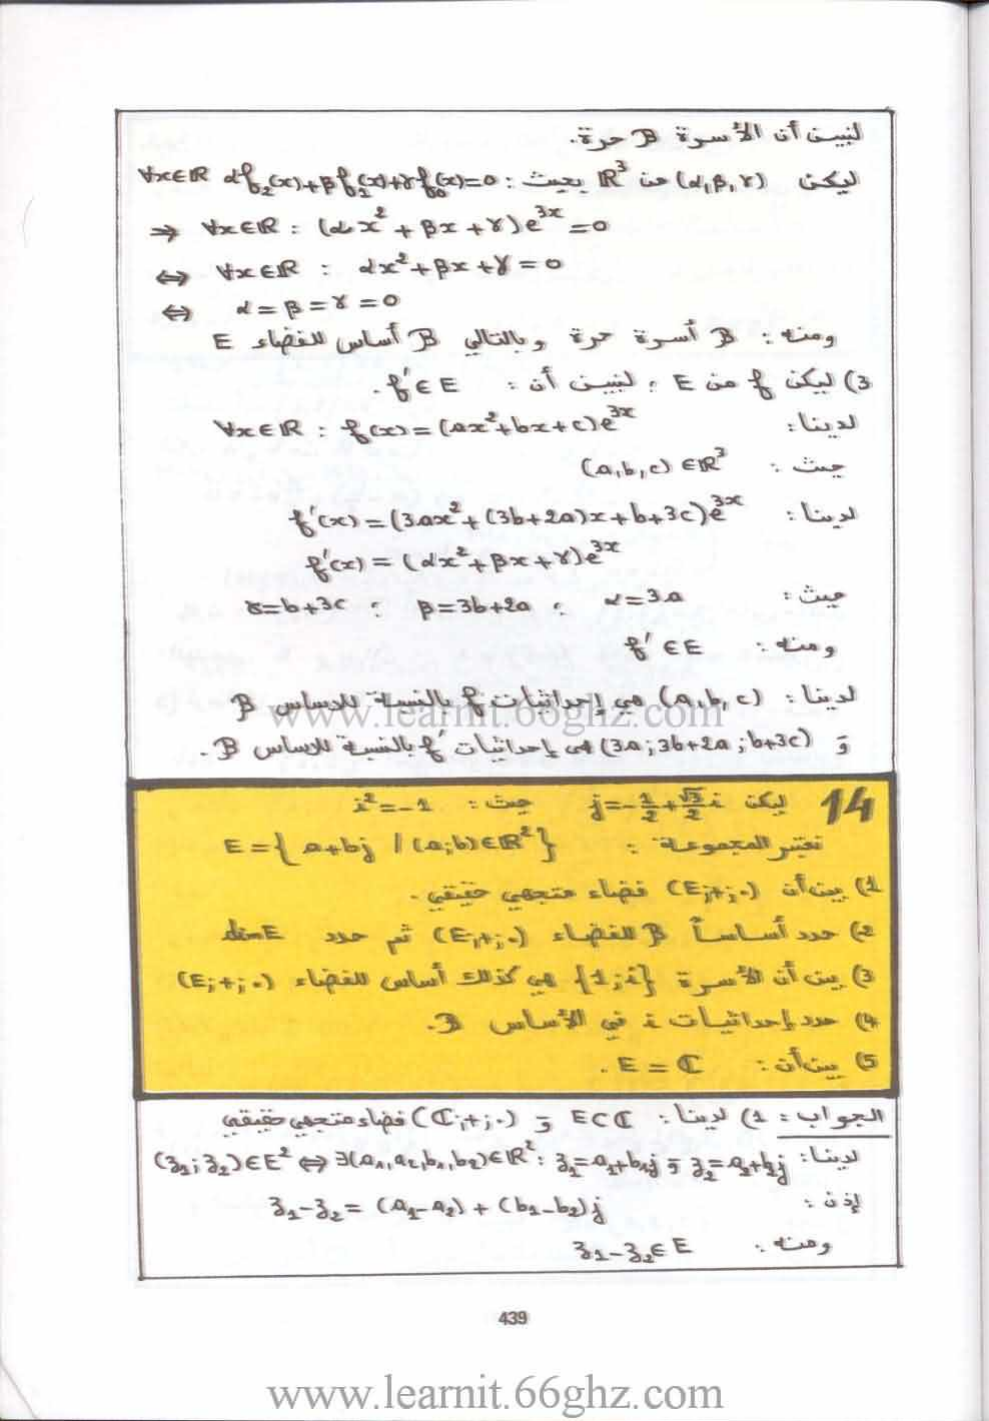 لنبين أن الأسرة B حرة.
ليكن (α,β,γ) من ℝ³ بحيث : ∀x∈ℝ αf₂(x)+βf₁(x)+γf₀(x)=0
⇒ ∀x∈ℝ : (αx²+βx+γ)e³ˣ=0
⇔ ∀x∈ℝ : αx²+βx+γ=0
⇔ α=β=γ=0
ومنه : B أسرة حرة وبالتالي B أساس للفضاء E
3) ليكن f من E ؛ لنبين أن : f'∈E.
لدينا: ∀x∈ℝ : f(x)=(ax²+bx+c)e³ˣ
حيث : (a,b,c)∈ℝ³
لدينا : f'(x)=(3ax²+(3b+2a)x+b+3c)e³ˣ
f'(x)=(αx²+βx+γ)e³ˣ
حيث : α=3a ؛ β=3b+2a ؛ γ=b+3c
ومنه : f'∈E
لدينا : (a,b,c) هي إحداثيات f بالنسبة للأساس B
و (3a;3b+2a;b+3c) هي إحداثيات f' بالنسبة للأساس B.
14 ليكن j=-1/2+√3/2 i حيث : i²=-1
نعتبر المجموعة : E={a+bj /(a;b)∈ℝ²}
1) بين أن (E;+;.) فضاء متجهي حقيقي.
2) حدد أساساً B للفضاء (E;+;.) ثم حدد dimE
3) بين أن الأسرة {1;i} هي كذلك أساس للفضاء (E;+;.)
4) حدد إحداثيات i في الأساس B.
5) بين أن : E=ℂ.
الجواب : 1) لدينا : E⊂ℂ و (ℂ;+;.) فضاء متجهي حقيقي
لدينا : (z₁;z₂)∈E² ⇔ ∃(a₁,a₂,b₁,b₂)∈ℝ² : z₁=a₁+b₁j و z₂=a₂+b₂j
إذن : z₁-z₂=(a₁-a₂)+(b₁-b₂)j
ومنه : z₁-z₂∈E
439
www.learnit.66ghz.com
www.learnit.66ghz.com